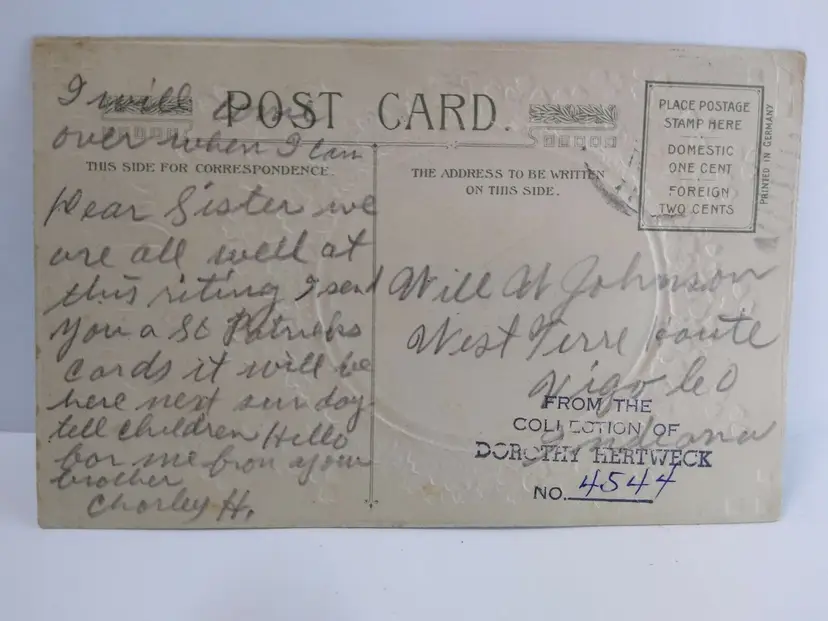 I will come
over when I can
POST CARD.
THIS SIDE FOR CORRESPONDENCE.
Dear Sister we
are all well at
this riting I send
you a St Patricks
cards it will be
here next sunday
tell children Hello
for me from your
brother
Charley H.
THE ADDRESS TO BE WRITTEN
ON THIS SIDE.
PLACE POSTAGE
STAMP HERE
DOMESTIC
ONE CENT
FOREIGN
TWO CENTS
PRINTED IN GERMANY
Will W Johnson
West Terre Haute
Vigo Co
Indiana
FROM THE
COLLECTION OF
DOROTHY HERTWECK
NO. 4544